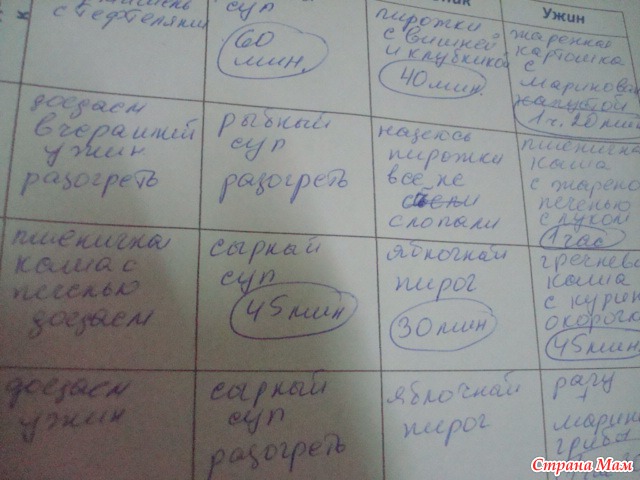 Ужин
с тефтелями
суп
60
мин.
пирожки
с вишней
и клубникой
40 мин.
жаренная
картошка
с
маринован
капустой
1ч. 20 мин
доедаем
вчерашний
ужин
разогреть
рыбный
суп
разогреть
надеюсь
пирожки
все не
слопали
пшенична
каша
с жарено
печенью
с луком
1 час
пшенична
каша с
печенью
доедаем
сырный
суп
45 мин
яблочный
пирог
30 мин
гречнева
каша
с курин
окорочк
45 мин.
доедаем
ужин
сырный
суп
разогреть
яблочный
пирог
рагу
+
марино
грибы
Страна Мам